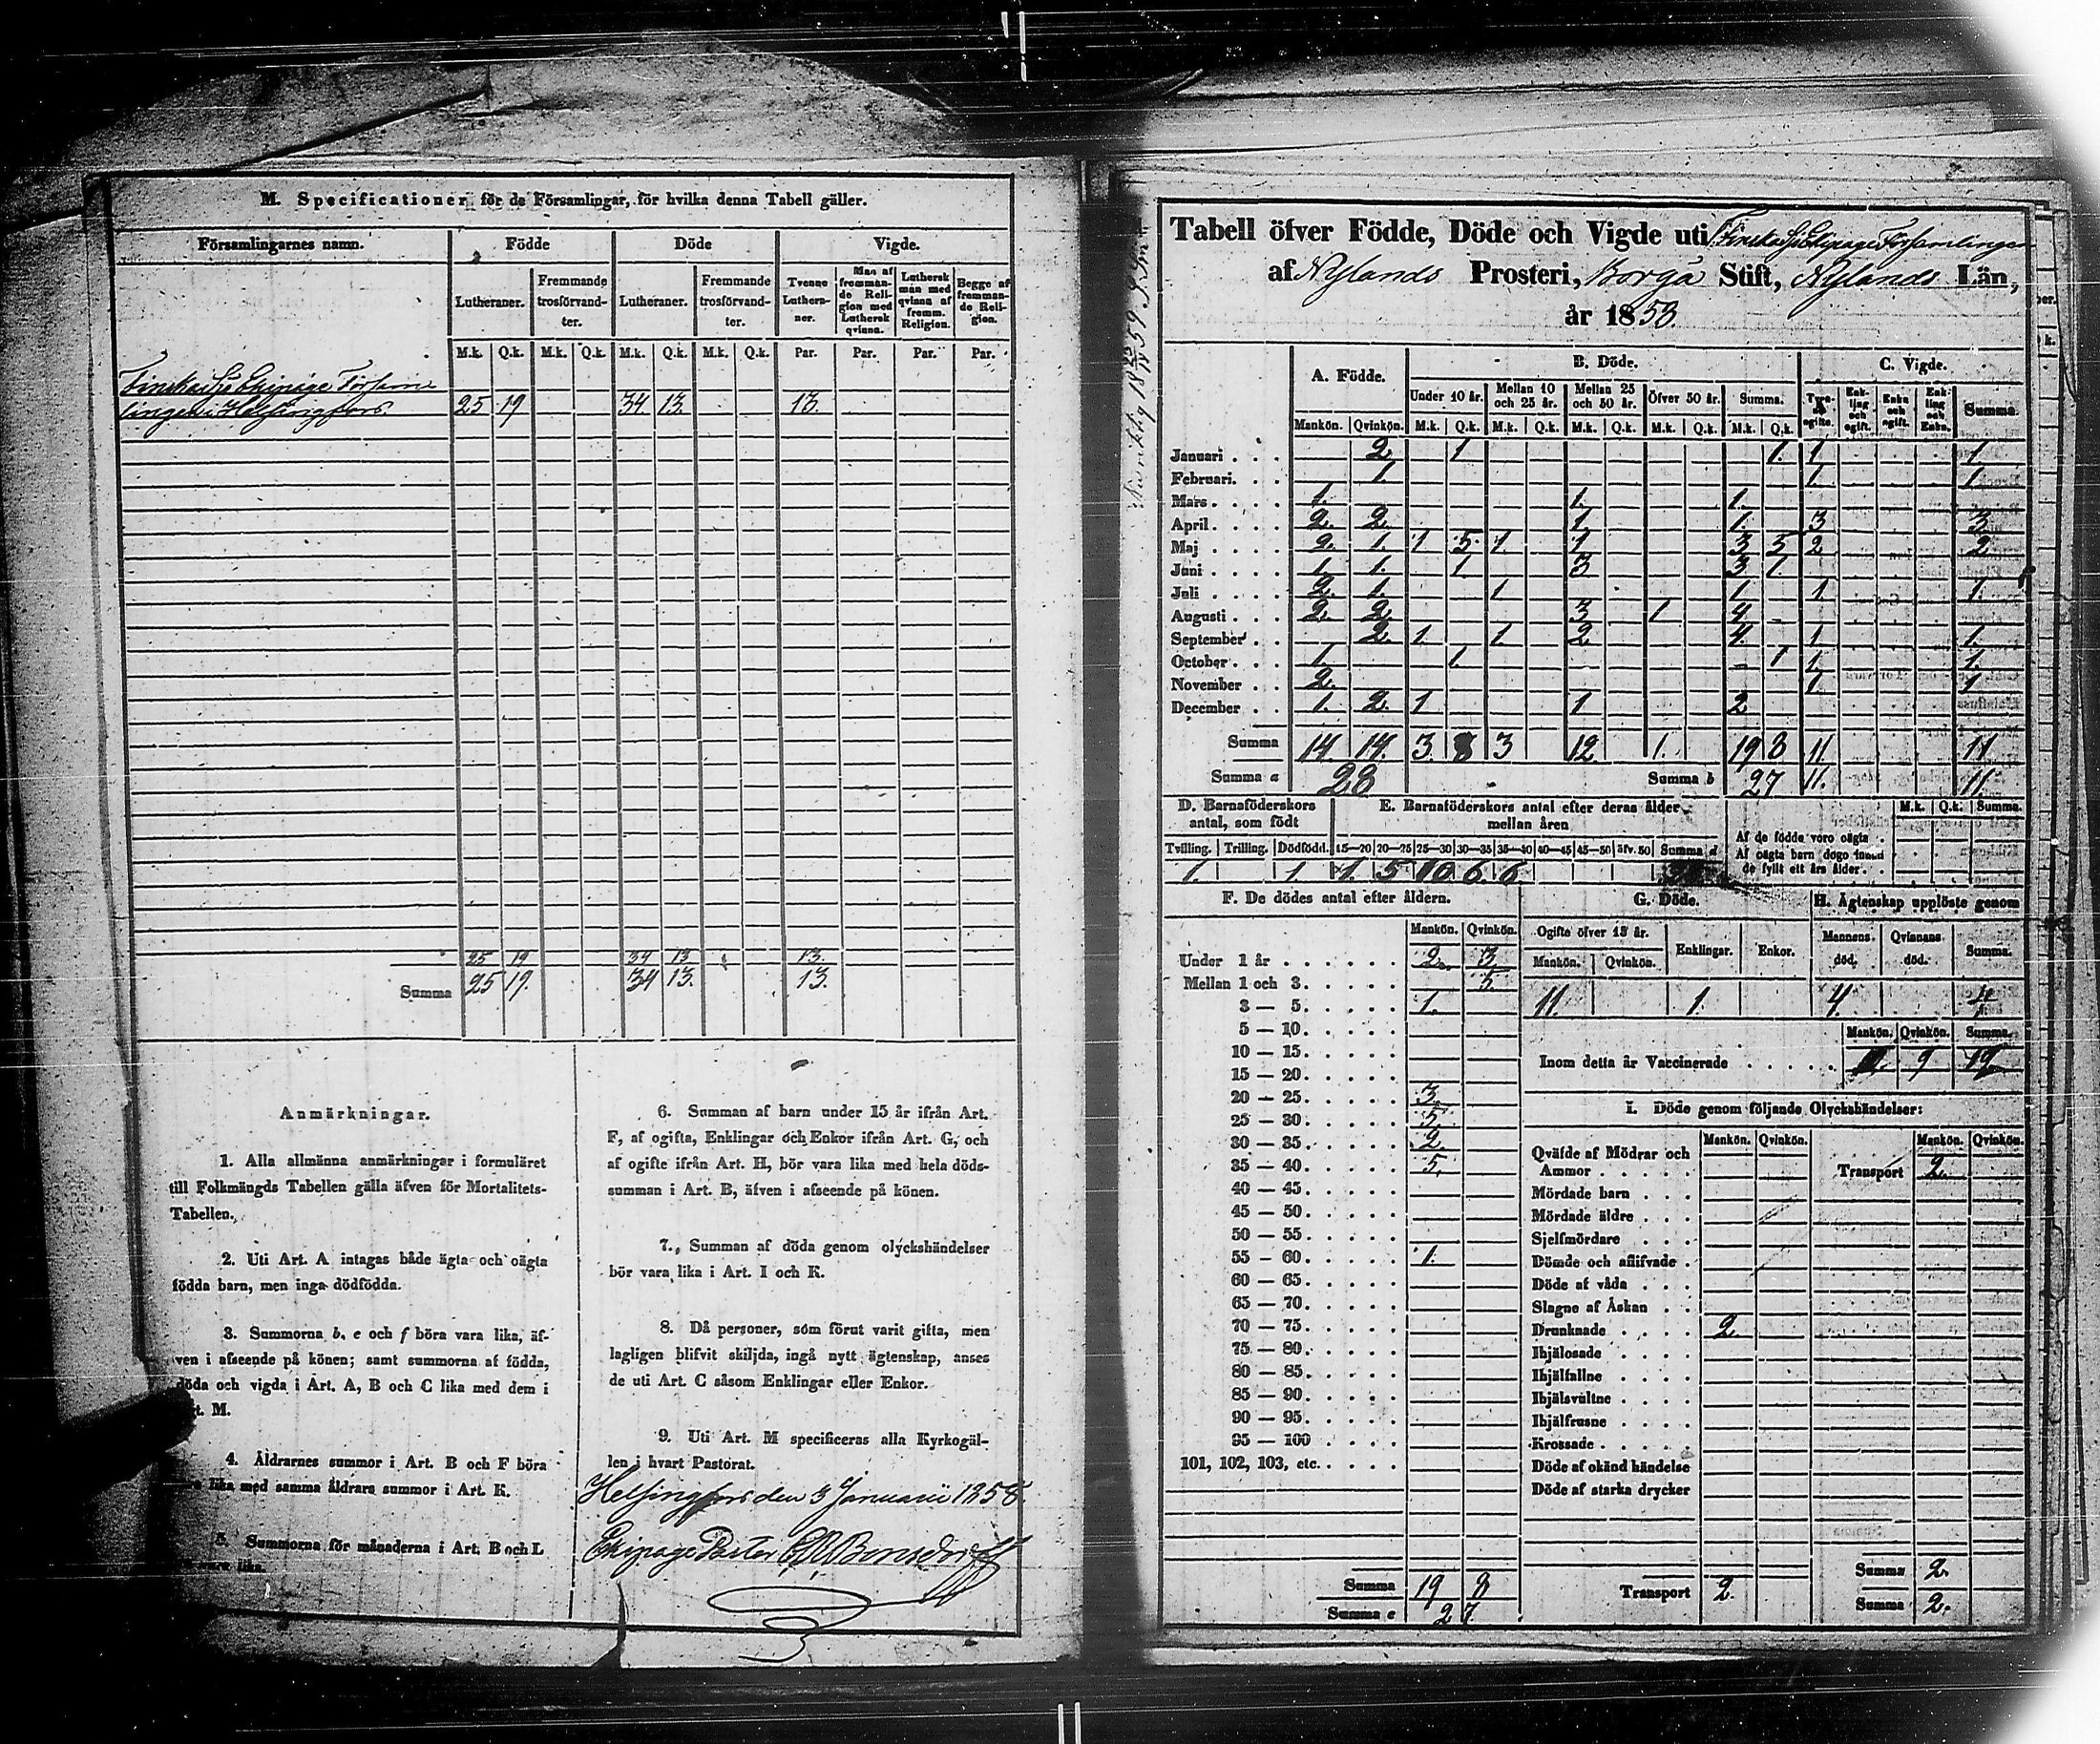 M. Specificationer för de Församlingar, för hvilka denna Tabell gäller.
Församlingarnes namn. Födde Döde Vigde.
Lutheraner. Fremmande trosförvandter. Lutheraner. Fremmande trosförvandter. Tvenne Lutheraner. Man af fremmande Religion med Luthersk qvinna. Luthersk man med qvinna af fremm. Religion. Begge af fremmande Religion.
M.k. Q.k. M.k. Q.k. M.k. Q.k. M.k. Q.k. Par. Par. Par. Par.
Finska Sjö Ekipage Försam
lingen i Helsingfors. 25 19 34 13. 13.
25 19 34 13 13.
Summa 25 19. 34 13. 13.
Anmärkningar.
1. Alla allmänna anmärkningar i formuläret
till Folkmängds Tabellen gälla äfven för Mortalitets-
Tabellen.
2. Uti Art. A intagas både ägta och oägta
födda barn, men inga dödfödda.
3. Summorna b, e och f böra vara lika, äf-
ven i afseende på könen; samt summorna af födda,
döda och vigda i Art. A, B och C lika med dem i
t. M.
4. Åldrarnes summor i Art. B och F böra
lika med samma åldrars summor i Art. K.
5. Summorna för månaderna i Art. B och L
vara lika.
6. Summan af barn under 15 år ifrån Art.
F, af ogifta, Enklingar och Enkor ifrån Art. G, och
af ogifte ifrån Art. H, bör vara lika med hela döds-
summan i Art. B, äfven i afseende på könen.
7. Summan af döda genom olyckshändelser
bör vara lika i Art. I och K.
8. Då personer, som förut varit gifta, men
lagligen blifvit skiljda, ingå nytt ägtenskap, anses
de uti Art. C såsom Enklingar eller Enkor.
9. Uti Art. M specificeras alla Kyrkogäl-
len i hvart Pastorat.
Helsingfors den 3 Januarii 1858.
Ekipage Pastor Bonsdorff
Tabell öfver Födde, Döde och Vigde uti Finska Sjö Ekipage Församlingen
af Nylands Prosteri, Borgå Stift, Nylands Län,
år 1858.
A. Födde. B. Döde. C. Vigde.
Under 10 år. Mellan 10 och 25 år. Mellan 25 och 50 år. Öfver 50 år. Summa. Tvenne ogifte. Enkling och ogift. Enka och ogift. Enkling och Enka. Summa.
Mankön. Qvinkön. M.k. Q.k. M.k. Q.k. M.k. Q.k. M.k. Q.k. M.k. Q.k.
Januari . . . 2 1 1. 1 1
Februari. . . 1. 1 1.
Mars . . . . 1. 1. 1.
April . . . . 2. 2. 1 1. 3 3
Maj . . . . 2. 1. 1 5. 1. 1 3 5 2 2
Juni . . . . 1. 1. 1. 3 3 1.
Juli . . . . 2. 1. 1 1 1 1.
Augusti . . . 2. 2. 3 1 4
September . . 2. 1 1. 2 4. 1 1.
October . . . 1. 1. 1 1. 1.
November . . 2. 1 1
December . . 1. 2. 1 1 2
Summa 14. 14. 3. 8 3 12. 1. 19 8 11 11
Summa a 28 Summa b 27 11. 11.
D. Barnaföderskors antal, som födt E. Barnaföderskors antal efter deras ålder mellan åren M.k. Q.k. Summa.
Tvilling. Trilling. Dödfödd. 15—20 20—25 25—30 30—35 35—40 40—45 45—50 öfv. 50 Summa d
1. 1. 1. 5 10 6. 6
Af de födde voro oägta .
Af oägta barn dogo innan
de fyllt ett års ålder . .
F. De dödes antal efter åldern.
Mankön. Qvinkön.
Under 1 år . . . . . . 2. 3
Mellan 1 och 3. . . . . 5.
3 — 5. . . . . 1.
5 — 10. . . . .
10 — 15. . . . .
15 — 20. . . . .
20 — 25. . . . . 3.
25 — 30. . . . . 5.
30 — 35. . . . . 2.
35 — 40. . . . . 5.
40 — 45. . . . .
45 — 50. . . . .
50 — 55. . . . .
55 — 60. . . . . 1.
60 — 65. . . . .
65 — 70. . . . .
70 — 75. . . . .
75 — 80. . . . .
80 — 85. . . . .
85 — 90. . . . .
90 — 95. . . . .
95 — 100 . . . .
101, 102, 103, etc. . . . .
Summa 19 8
Summa e 27.
G. Döde. H. Ägtenskap upplöste genom
Ogifte öfver 15 år. Enklingar. Enkor. Mannens död. Qvinnans död. Summa.
Mankön. Qvinkön.
11. 1. 4. 4
Mankön. Qvinkön. Summa.
Inom detta år Vaccinerade . . . . . 9
I. Döde genom följande Olyckshändelser:
Mankön. Qvinkön. Mankön. Qvinkön.
Qväfde af Mödrar och
Ammor . . . . . Transport 2.
Mördade barn . . .
Mördade äldre . . .
Sjelfmördare . . .
Dömde och aflifvade .
Döde af våda . . .
Slagne af Åskan . .
Drunknade . . . . 2.
Ihjälosade . . . .
Ihjälfallne . . . .
Ihjälsvultne . . . .
Ihjälfrusne . . . .
Krossade . . . . .
Döde af okänd händelse
Döde af starka drycker
Summa 2.
Transport 2. Summa 2.